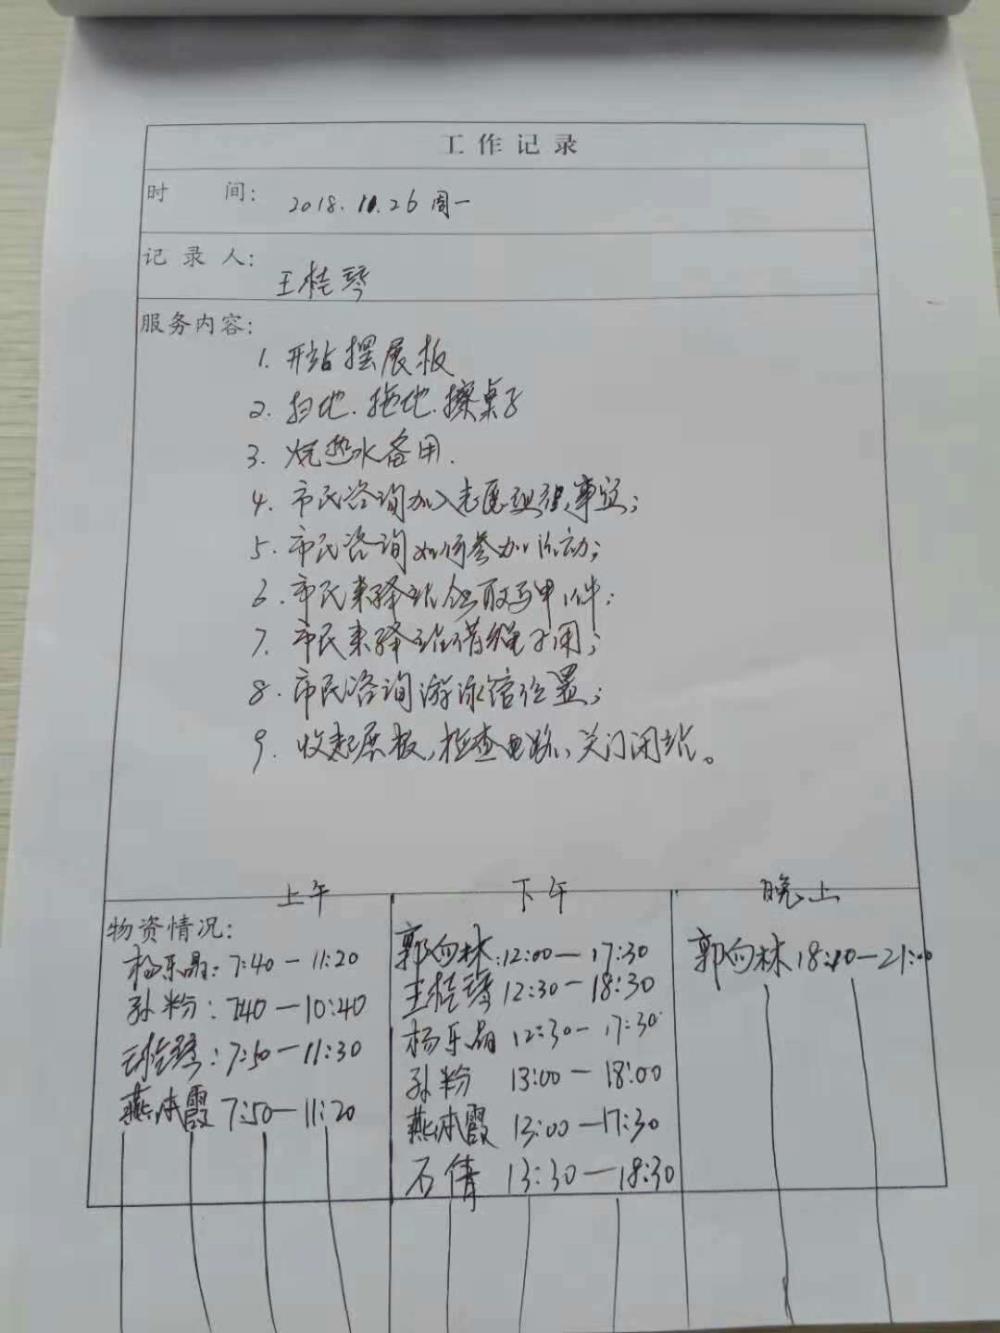 工作记录
时 间: 2018.11.26 周一
记录人: 王桂琴
服务内容:
1. 开站摆展板
2. 扫地.拖地.擦桌子
3. 烧热水备用.
4. 市民咨询加入志愿组织事宜;
5. 市民咨询如何参加活动;
6. 市民来驿站领取马甲、件;
7. 市民来驿站借绳子用;
8. 市民咨询游泳馆位置;
9. 收起展板,检查电路,关门闭站。
上午 下午 晚上
物资情况:
杨乐晶: 7:40-11:20
孙粉: 740-10:40
王桂琴: 7:50-11:30
燕冰霞 7:50-11:20
郭向林:12:00-17:30
王桂琴 12:30-18:30
杨乐晶 12:30-17:30
孙粉 13:00-18:00
燕冰霞 13:00-17:30
石倩 13:30-18:30
郭向林 18:00-21:00